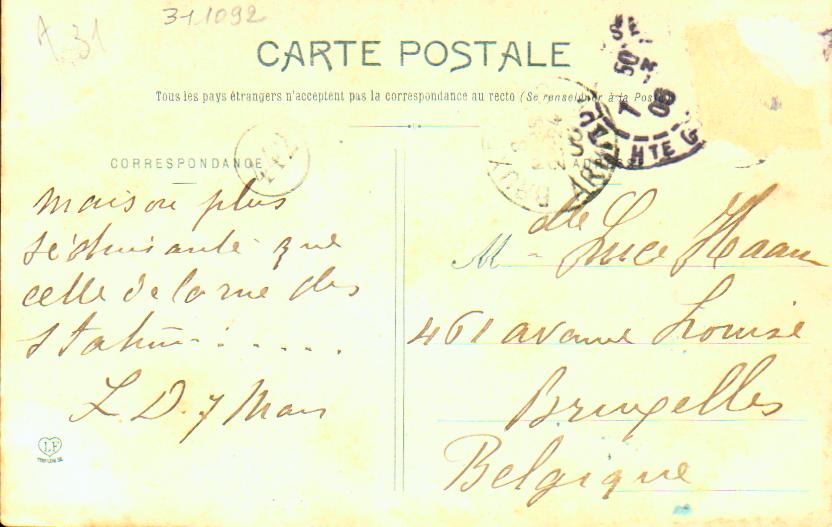 A 31
311092
CARTE POSTALE
Tous les pays étrangers n'acceptent pas la correspondance au recto (Se renseigner à la Poste)
CORRESPONDANCE
ADRESSE
442
maison plus
séduisante que
celle de la rue des
Station . . . . .
L. D. 7 Mars
LF
Mlle Luce Haan
461 avenue Louise
Bruxelles
Belgique
HTE G
7
08